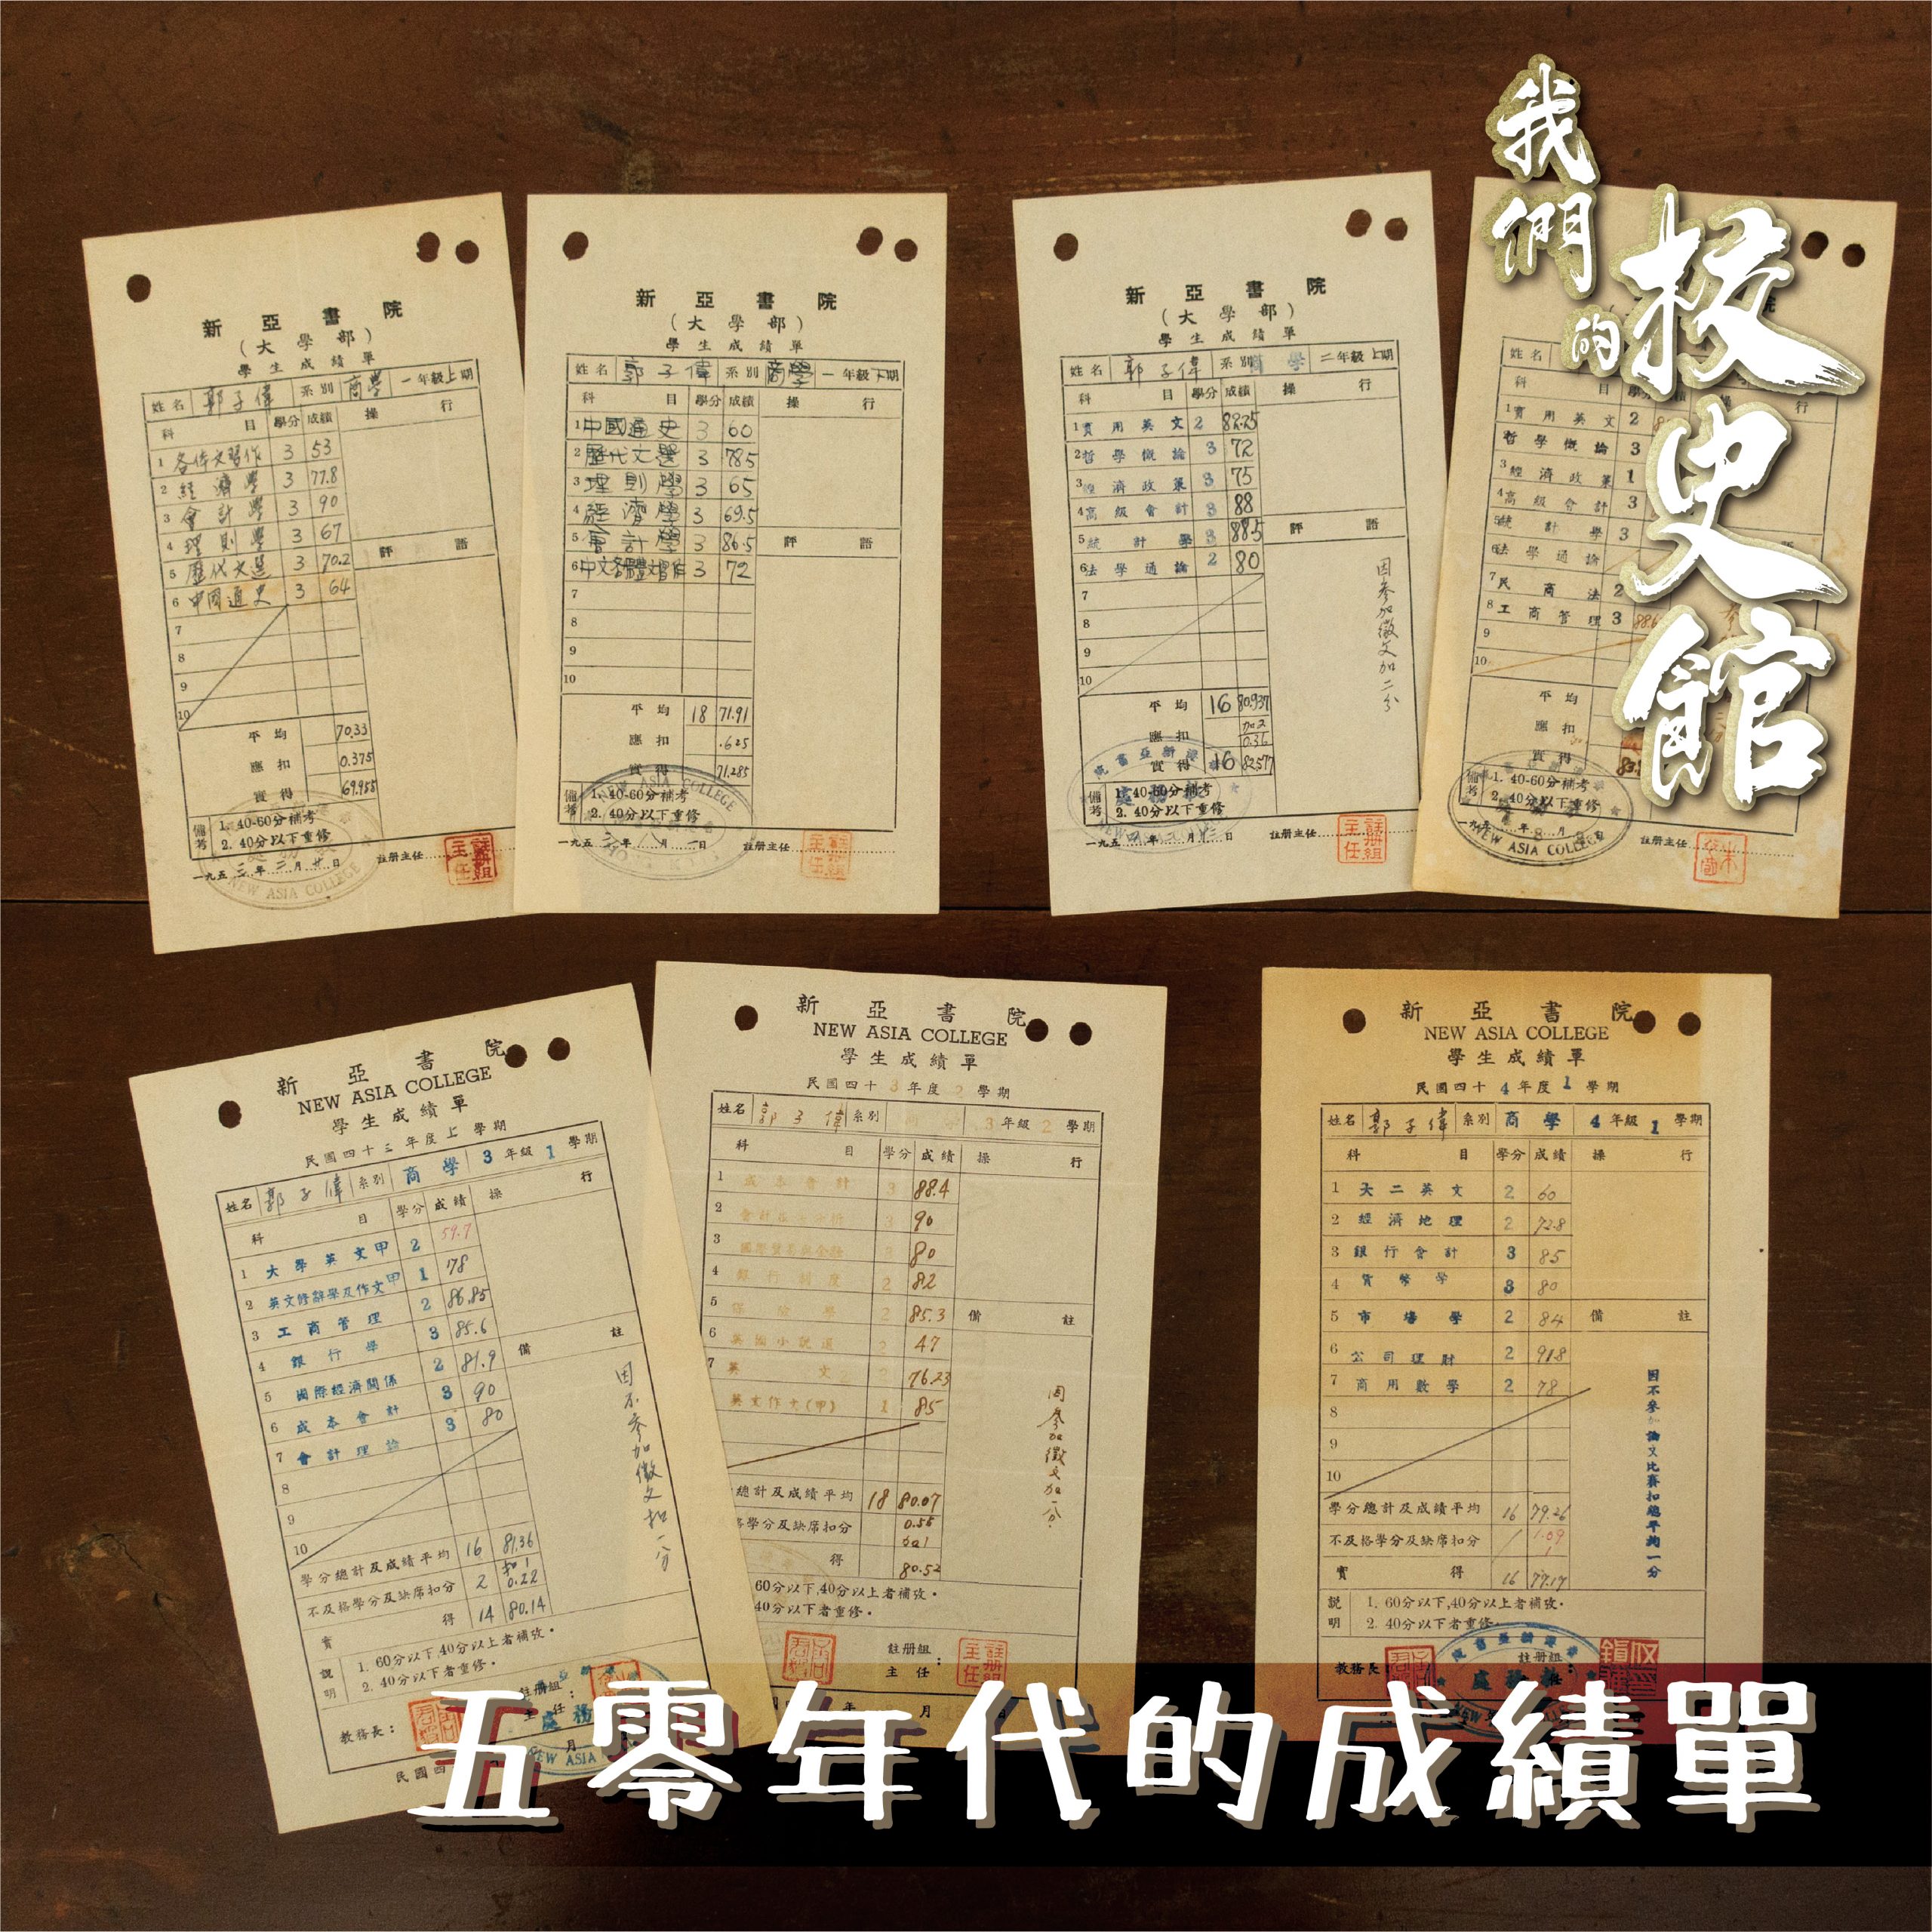 我們的
校史館
新亞書院
(大學部)
學生成績單
姓名 郭子偉 系別 商學 一年級上期
科目 學分 成績 操行
1 各体文習作 3 53
2 經濟學 3 77.8
3 會計學 3 90
4 理則學 3 67
5 歷代文選 3 70.2
6 中國通史 3 64
7
8
9
10
評語
平均 70.33
應扣 0.375
實得 69.955
備考 1. 40-60分補考
2. 40分以下重修
一九五三年二月廿日 註册主任
註册組主任
NEW ASIA COLLEGE
新亞書院
(大學部)
學生成績單
姓名 郭子偉 系別 商學 一年級下期
科目 學分 成績 操行
1 中國通史 3 60
2 歷代文選 3 78.5
3 理則學 3 65
4 經濟學 3 69.5
5 會計學 3 86.5
6 中文各體文習作 3 72
7
8
9
10
評語
平均 18 71.91
應扣 .625
實得 71.285
備考 1. 40-60分補考
2. 40分以下重修
一九五三年八月一日 註册主任
註册組主任
NEW ASIA COLLEGE
新亞書院
(大學部)
學生成績單
姓名 郭子偉 系別 商學 二年級上期
科目 學分 成績 操行
1 實用英文 2 82.25
2 哲學概論 3 72
3 經濟政策 3 75
4 高級會計 3 88
5 統計學 3 88.5
6 法學通論 2 80
7
8
9
10
評語
因參加徵文加二分
平均 16 80.937
加2
應扣 0.36
實得 16 82.577
備考 1. 40-60分補考
2. 40分以下重修
一九五四年二月廿二日 註册主任
註册組主任
NEW ASIA COLLEGE
院
姓名
科目 學分 行
1 實用英文 2
哲學概論 3
3 經濟政策 1
4 高級會計 3
5 統計學 3
6 法學通論
7 民商法 2
8 工商管理 3 88.6
9
10
平均
應扣
實得
備考 1. 40-60分補考
2. 40分以下重修
年8月 日 註册主任
NEW ASIA COLLEGE
新亞書院
NEW ASIA COLLEGE
學生成績單
民國四十三年度上學期
姓名 郭子偉 系別 商學 3年級1學期
科目 學分 成績 操行
1 大學英文甲 2 59.7
2 英文修辭學及作文甲 1 78
3 工商管理 2 86.85
4 銀行學 3 85.6
5 國際經濟關係 2 81.9
6 成本會計 3 90
7 會計理論 3 80
8
9
10
備註
因不參加徵文扣一分
學分總計及成績平均 16 81.36
扣1
不及格學分及缺席扣分 2 0.22
實得 14 80.14
說明 1. 60分以下,40分以上者補攷。
2. 40分以下者重修。
教務長: 註册組主任:
民國四
NEW ASIA
新亞書院
NEW ASIA COLLEGE
學生成績單
民國四十3年度2學期
姓名 郭子偉 系別 3年級2學期
科目 學分 成績 操行
1 成本會計 3 88.4
2 3 90
3 國際貿易與金融 80
4 銀行制度 2 82
5 保險學 2 85.3
6 英國小說選 2 47
7 英文 76.23
英文作文(甲) 1 85
備註
因參加徵文加一分
總計及成績平均 18 80.07
學分及缺席扣分 0.55
加1
得 80.52
60分以下,40分以上者補攷。
40分以下者重修。
註册組主任:
註册組主任
年 月
新亞書院
NEW ASIA COLLEGE
學生成績單
民國四十4年度1學期
姓名 郭子偉 系別 商學 4年級1學期
科目 學分 成績 操行
1 大二英文 2 60
2 經濟地理 2 72.8
3 銀行會計 3 85
4 貨幣學 3 80
5 市場學 2 84
6 公司理財 2 91.8
7 商用數學 2 78
8
9
10
備註
因不參加論文比賽扣總平均一分
學分總計及成績平均 16 79.26
不及格學分及缺席扣分 1.09
1
實得 16 77.17
說明 1. 60分以下,40分以上者補攷。
2. 40分以下者重修。
教務長: 註册組主任:
五零年代的成績單